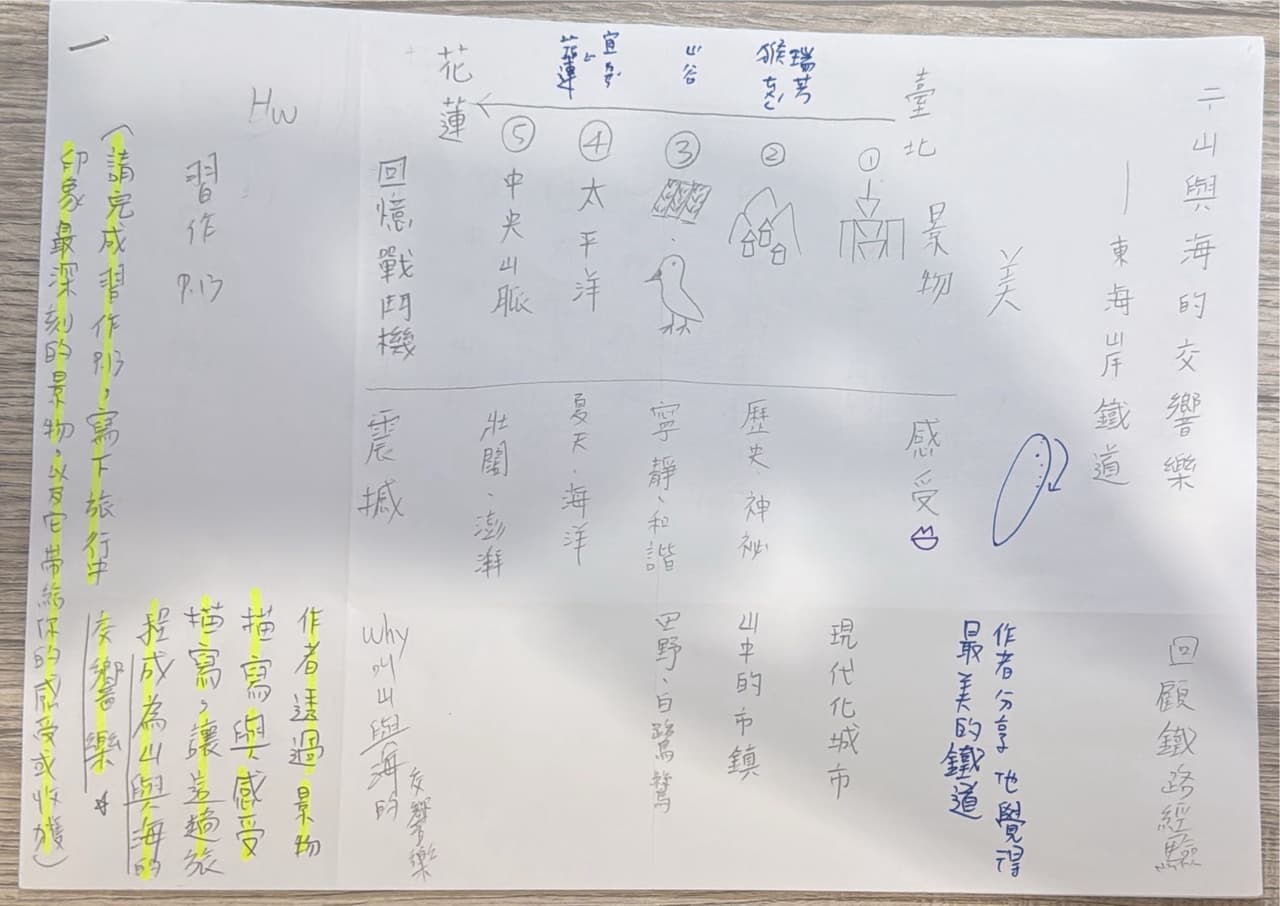 二 山與海的交響樂
—東海岸鐵道
回顧鐵路經驗
美
作者分享他覺得
最美的鐵道
臺北
景物
感受
①
現代化城市
瑞芳
猴硐
②
歷史、神祕
山中的市鎮
山谷
③
寧靜、和諧
田野、白鷺鷥
宜蘭
花蓮
④
太平洋
夏天、海洋
⑤
中央山脈
壯闊、澎湃
花蓮
回憶戰鬥機
震撼
why叫山與海的
交響樂
作者透過景物
描寫與感受
描寫，讓這趟旅
程成為山與海的
交響樂
HW
習作
P.13
(請完成習作P.13，寫下旅行中
印象最深刻的景物，以及它帶給你的感受或收穫)
一